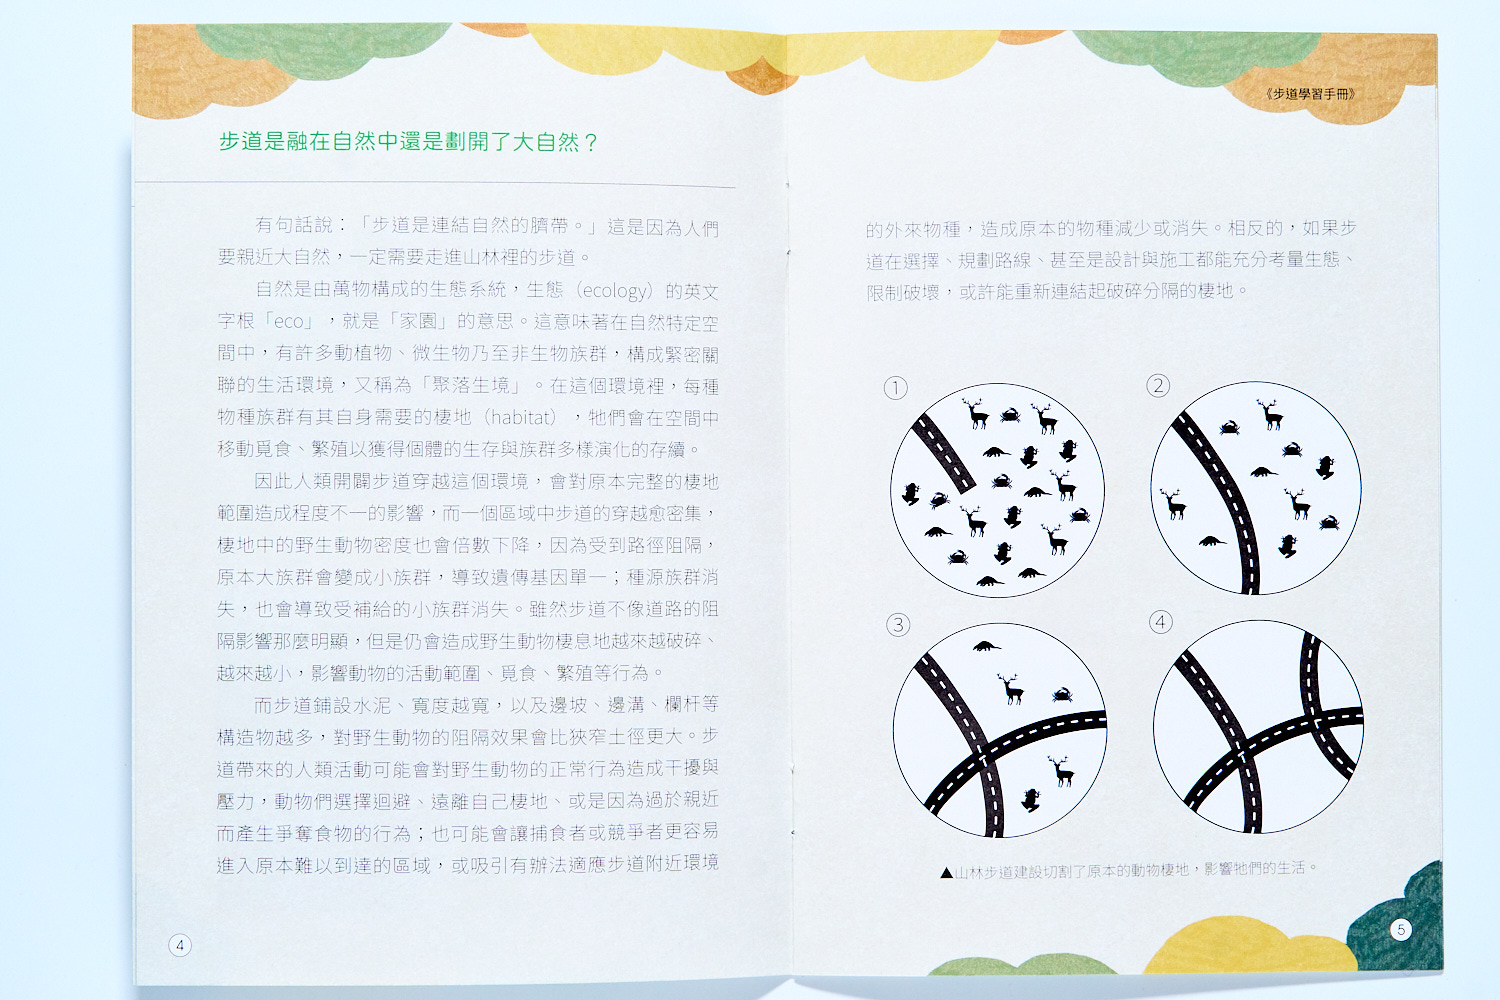 步道是融在自然中還是劃開了大自然？
有句話說：「步道是連結自然的臍帶。」這是因為人們
要親近大自然，一定需要走進山林裡的步道。
自然是由萬物構成的生態系統，生態（ecology）的英文
字根「eco」，就是「家園」的意思。這意味著在自然特定空
間中，有許多動植物、微生物乃至非生物族群，構成緊密關
聯的生活環境，又稱為「聚落生境」。在這個環境裡，每種
物種族群有其自身需要的棲地（habitat），牠們會在空間中
移動覓食、繁殖以獲得個體的生存與族群多樣演化的存續。
因此人類開闢步道穿越這個環境，會對原本完整的棲地
範圍造成程度不一的影響，而一個區域中步道的穿越愈密集，
棲地中的野生動物密度也會倍數下降，因為受到路徑阻隔，
原本大族群會變成小族群，導致遺傳基因單一；種源族群消
失，也會導致受補給的小族群消失。雖然步道不像道路的阻
隔影響那麼明顯，但是仍會造成野生動物棲息地越來越破碎、
越來越小，影響動物的活動範圍、覓食、繁殖等行為。
而步道鋪設水泥、寬度越寬，以及邊坡、邊溝、欄杆等
構造物越多，對野生動物的阻隔效果會比狹窄土徑更大。步
道帶來的人類活動可能會對野生動物的正常行為造成干擾與
壓力，動物們選擇迴避、遠離自己棲地、或是因為過於親近
而產生爭奪食物的行為；也可能會讓捕食者或競爭者更容易
進入原本難以到達的區域，或吸引有辦法適應步道附近環境
4
《步道學習手冊》
的外來物種，造成原本的物種減少或消失。相反的，如果步
道在選擇、規劃路線、甚至是設計與施工都能充分考量生態、
限制破壞，或許能重新連結起破碎分隔的棲地。
①
②
③
④
▲山林步道建設切割了原本的動物棲地，影響牠們的生活。
5